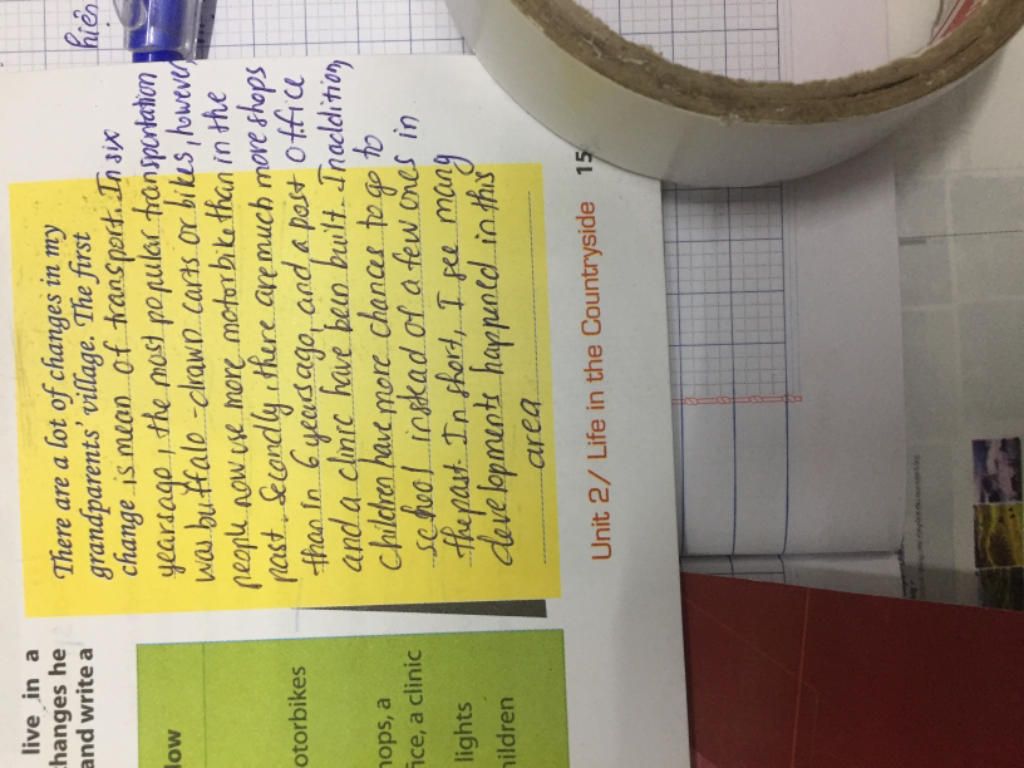 hiên
There are a lot of changes in my
grandparents' village. The first
change is mean of transport. In six
yearsago, the most popular transportation
was buffalo-drawn carts or bikes, however,
people now use more motorbike than in the
past. Secondly, there are much more shops
than in 6 years ago, and a post office
and a clinic have been built. In addition,
children have more chances to go to
school instead of a few ones in
the past. In short, I see many
developments happened in this
area
Unit 2/ Life in the Countryside 15
live in a
changes he
and write a
low
otorbikes
hops, a
fice, a clinic
lights
hildren